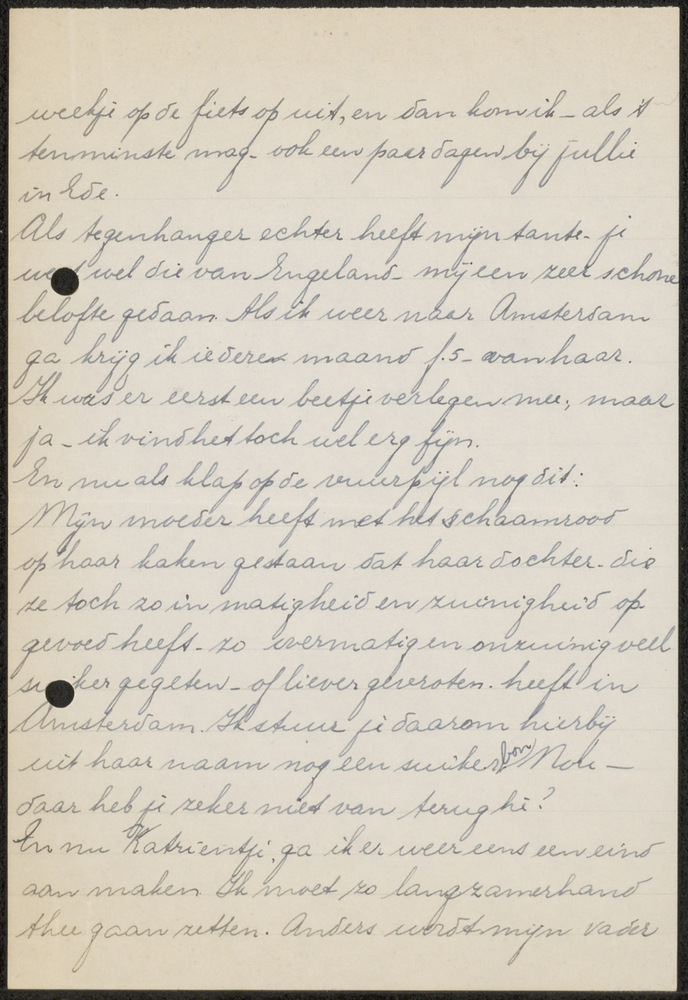 weekje op de fiets op uit, en dan kom ik – als 't
tenminste mag – ook een paar dagen bij jullie
in Ede.
Als tegenhanger echter heeft mijn tante – je
weet wel die van Engeland – mij een zeer schone
belofte gedaan. Als ik weer naar Amsterdam
ga krijg ik iedere maand f.5– van haar.
Ik was er eerst een beetje verlegen mee, maar
ja – ik vind het toch wel erg fijn.
En nu als klap op de vuurpijl nog dit:
Mijn moeder heeft met het schaamrood
op haar kaken gestaan dat haar dochter – die
ze toch zo in matigheid en zuinigheid op
gevoed heeft – zo overmatig en onzuinig veel
suiker gegeten – of liever gevroten – heeft in
Amsterdam. Ik stuur je daarom hierbij
uit haar naam nog een suikerbon. Nou –
daar heb je zeker niet van terug hè?
En nu Katrientje, ga ik er weer eens een eind
aan maken. Ik moet zo langzamerhand
thee gaan zetten. Anders wordt mijn vader